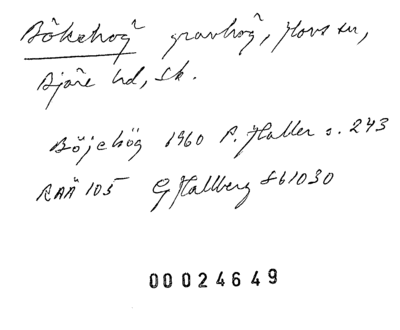 Bökehög gravhög, Hovs sn,
Bjäre hd, Sk.
Böjehög 1960 P. Haller s. 243
RAÄ 105 G Hallberg 861030
00024649